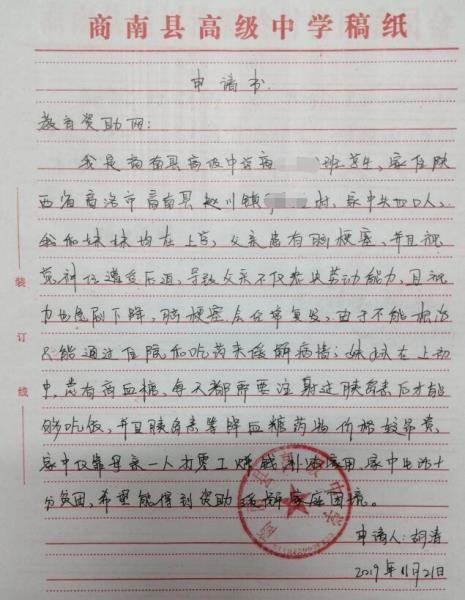 商南县高级中学稿纸
申请书
教育资助网:
我是商南县高级中学高班学生,家住陕
西省商洛市商南县赵川镇村,家中共四口人,
我和妹妹均在上学,父亲患有脑梗塞,并且视
觉神经遭受压迫,导致父亲不仅丧失劳动能力,且视
力也急剧下降,脑梗塞会经常复发,由于不能根治
只能通过住院和吃药来缓解病情;妹妹在上初
中,患有高血糖,每天都需要注射过胰岛素后才能
够吃饭,并且胰岛素等降血糖药物价格较昂贵,
家中仅靠母亲一人打零工赚钱补贴家用,家中生活十
分贫困,希望能得到资助缓解家庭困境。
申请人:胡涛
2019年11月21日
装
订
线